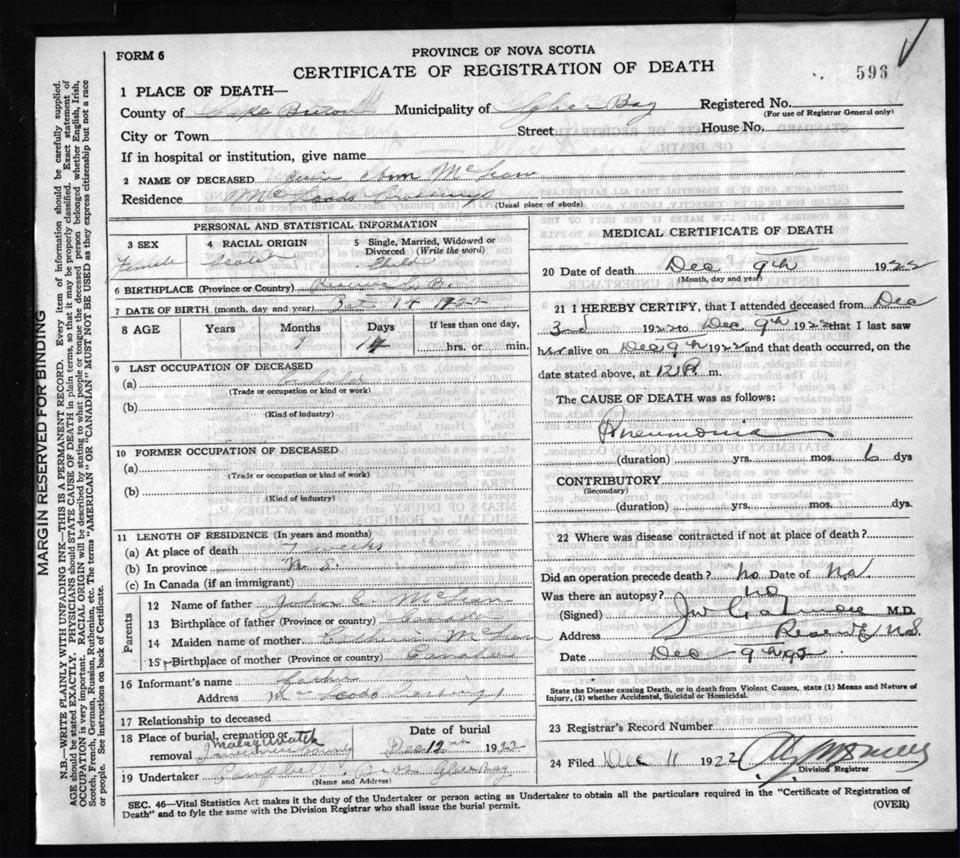 FORM 6
PROVINCE OF NOVA SCOTIA
CERTIFICATE OF REGISTRATION OF DEATH
593
1 PLACE OF DEATH—
County of Cape Breton Municipality of Glace Bay Registered No.
(For use of Registrar General only)
City or Town Street House No.
If in hospital or institution, give name
2 NAME OF DECEASED Ann McLean
Residence McLeods Crossings
(Usual place of abode)
PERSONAL AND STATISTICAL INFORMATION
3 SEX 4 RACIAL ORIGIN 5 Single, Married, Widowed or Divorced (Write the word)
Female Scotch Child
6 BIRTHPLACE (Province or Country) Reserve C. B.
7 DATE OF BIRTH (month, day and year) 1922
8 AGE Years Months Days If less than one day,
1 hrs. or min.
9 LAST OCCUPATION OF DECEASED
(a)
(Trade or occupation or kind or work)
(b)
(Kind of industry)
10 FORMER OCCUPATION OF DECEASED
(a)
(Trade or occupation or kind of work)
(b)
(Kind of industry)
11 LENGTH OF RESIDENCE (In years and months)
(a) At place of death 7 weeks
(b) In province N. S.
(c) In Canada (if an immigrant)
Parents
12 Name of father John McLean
13 Birthplace of father (Province or country) Canada
14 Maiden name of mother McLean
15 Birthplace of mother (Province or country) Canada
16 Informant's name Father
Address McLeods Crossing
17 Relationship to deceased
18 Place of burial, cremation or removal Date of burial
Dec 12th 1922
19 Undertaker Campbell Glace Bay
(Name and Address)
MEDICAL CERTIFICATE OF DEATH
20 Date of death Dec 9th 1922
(Month, day and year)
21 I HEREBY CERTIFY, that I attended deceased from Dec
3rd 1922 to Dec 9th 1922 that I last saw
her alive on Dec 9th 1922 and that death occurred, on the
date stated above, at 12 P. m.
The CAUSE OF DEATH was as follows:
Pneumonia
(duration) yrs. mos. 6 dys
CONTRIBUTORY
(Secondary)
(duration) yrs. mos. dys.
22 Where was disease contracted if not at place of death?
Did an operation precede death? no Date of no.
Was there an autopsy? no
(Signed) M.D.
Address Reserve N.S.
Date Dec 9th
State the Disease causing Death, or in death from Violent Causes, state (1) Means and Nature of
Injury, (2) whether Accidental, Suicidal or Homicidal.
23 Registrar's Record Number
24 Filed Dec 11 1922
Division Registrar
SEC. 46—Vital Statistics Act makes it the duty of the Undertaker or person acting as Undertaker to obtain all the particulars required in the "Certificate of Registration of
Death" and to fyle the same with the Division Registrar who shall issue the burial permit.
(OVER)
MARGIN RESERVED FOR BINDING
N.B.—WRITE PLAINLY WITH UNFADING INK—THIS IS A PERMANENT RECORD. Every item of information should be carefully supplied.
AGE should be stated EXACTLY. PHYSICIANS should STATE CAUSE OF DEATH in plain terms, so that it may be properly classified. Exact statement of
OCCUPATION is very important. RACIAL ORIGIN will be described by stating to what people or tongue the deceased person belonged whether English, Irish,
Scotch, French, German, Russian, Ruthenian, etc. The terms "AMERICAN" OR "CANADIAN" MUST NOT BE USED as they express citizenship but not a race
or people. See instructions on back of Certificate.